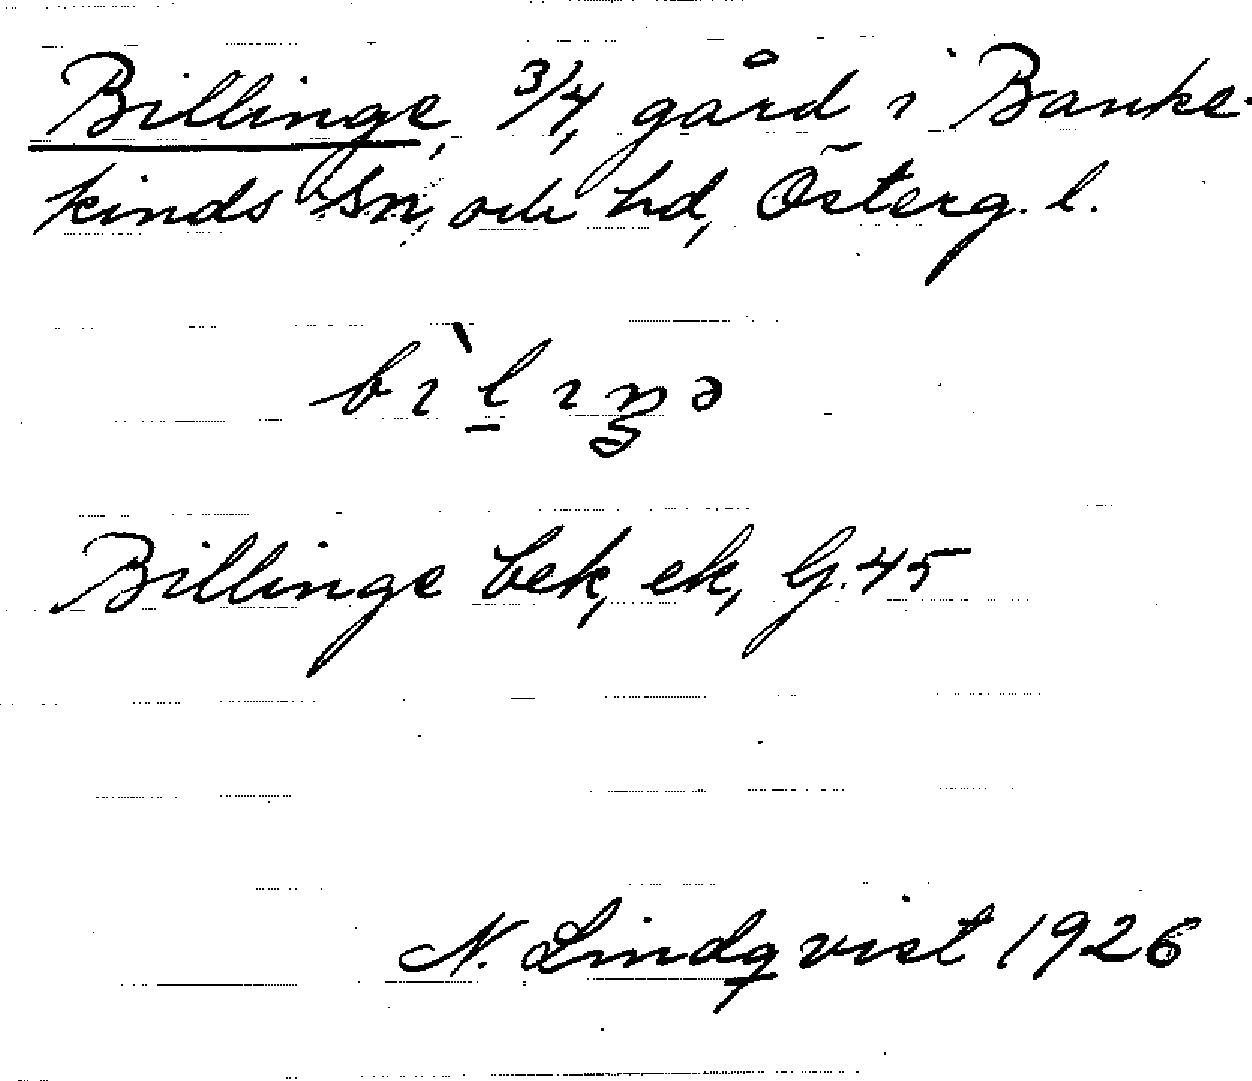 Billinge, 3/4, gård i Banke-
kinds sn, och hd, Österg. l.
bìḻıŋə
Billinge bek, ek, G. 45
N. Lindqvist 1926